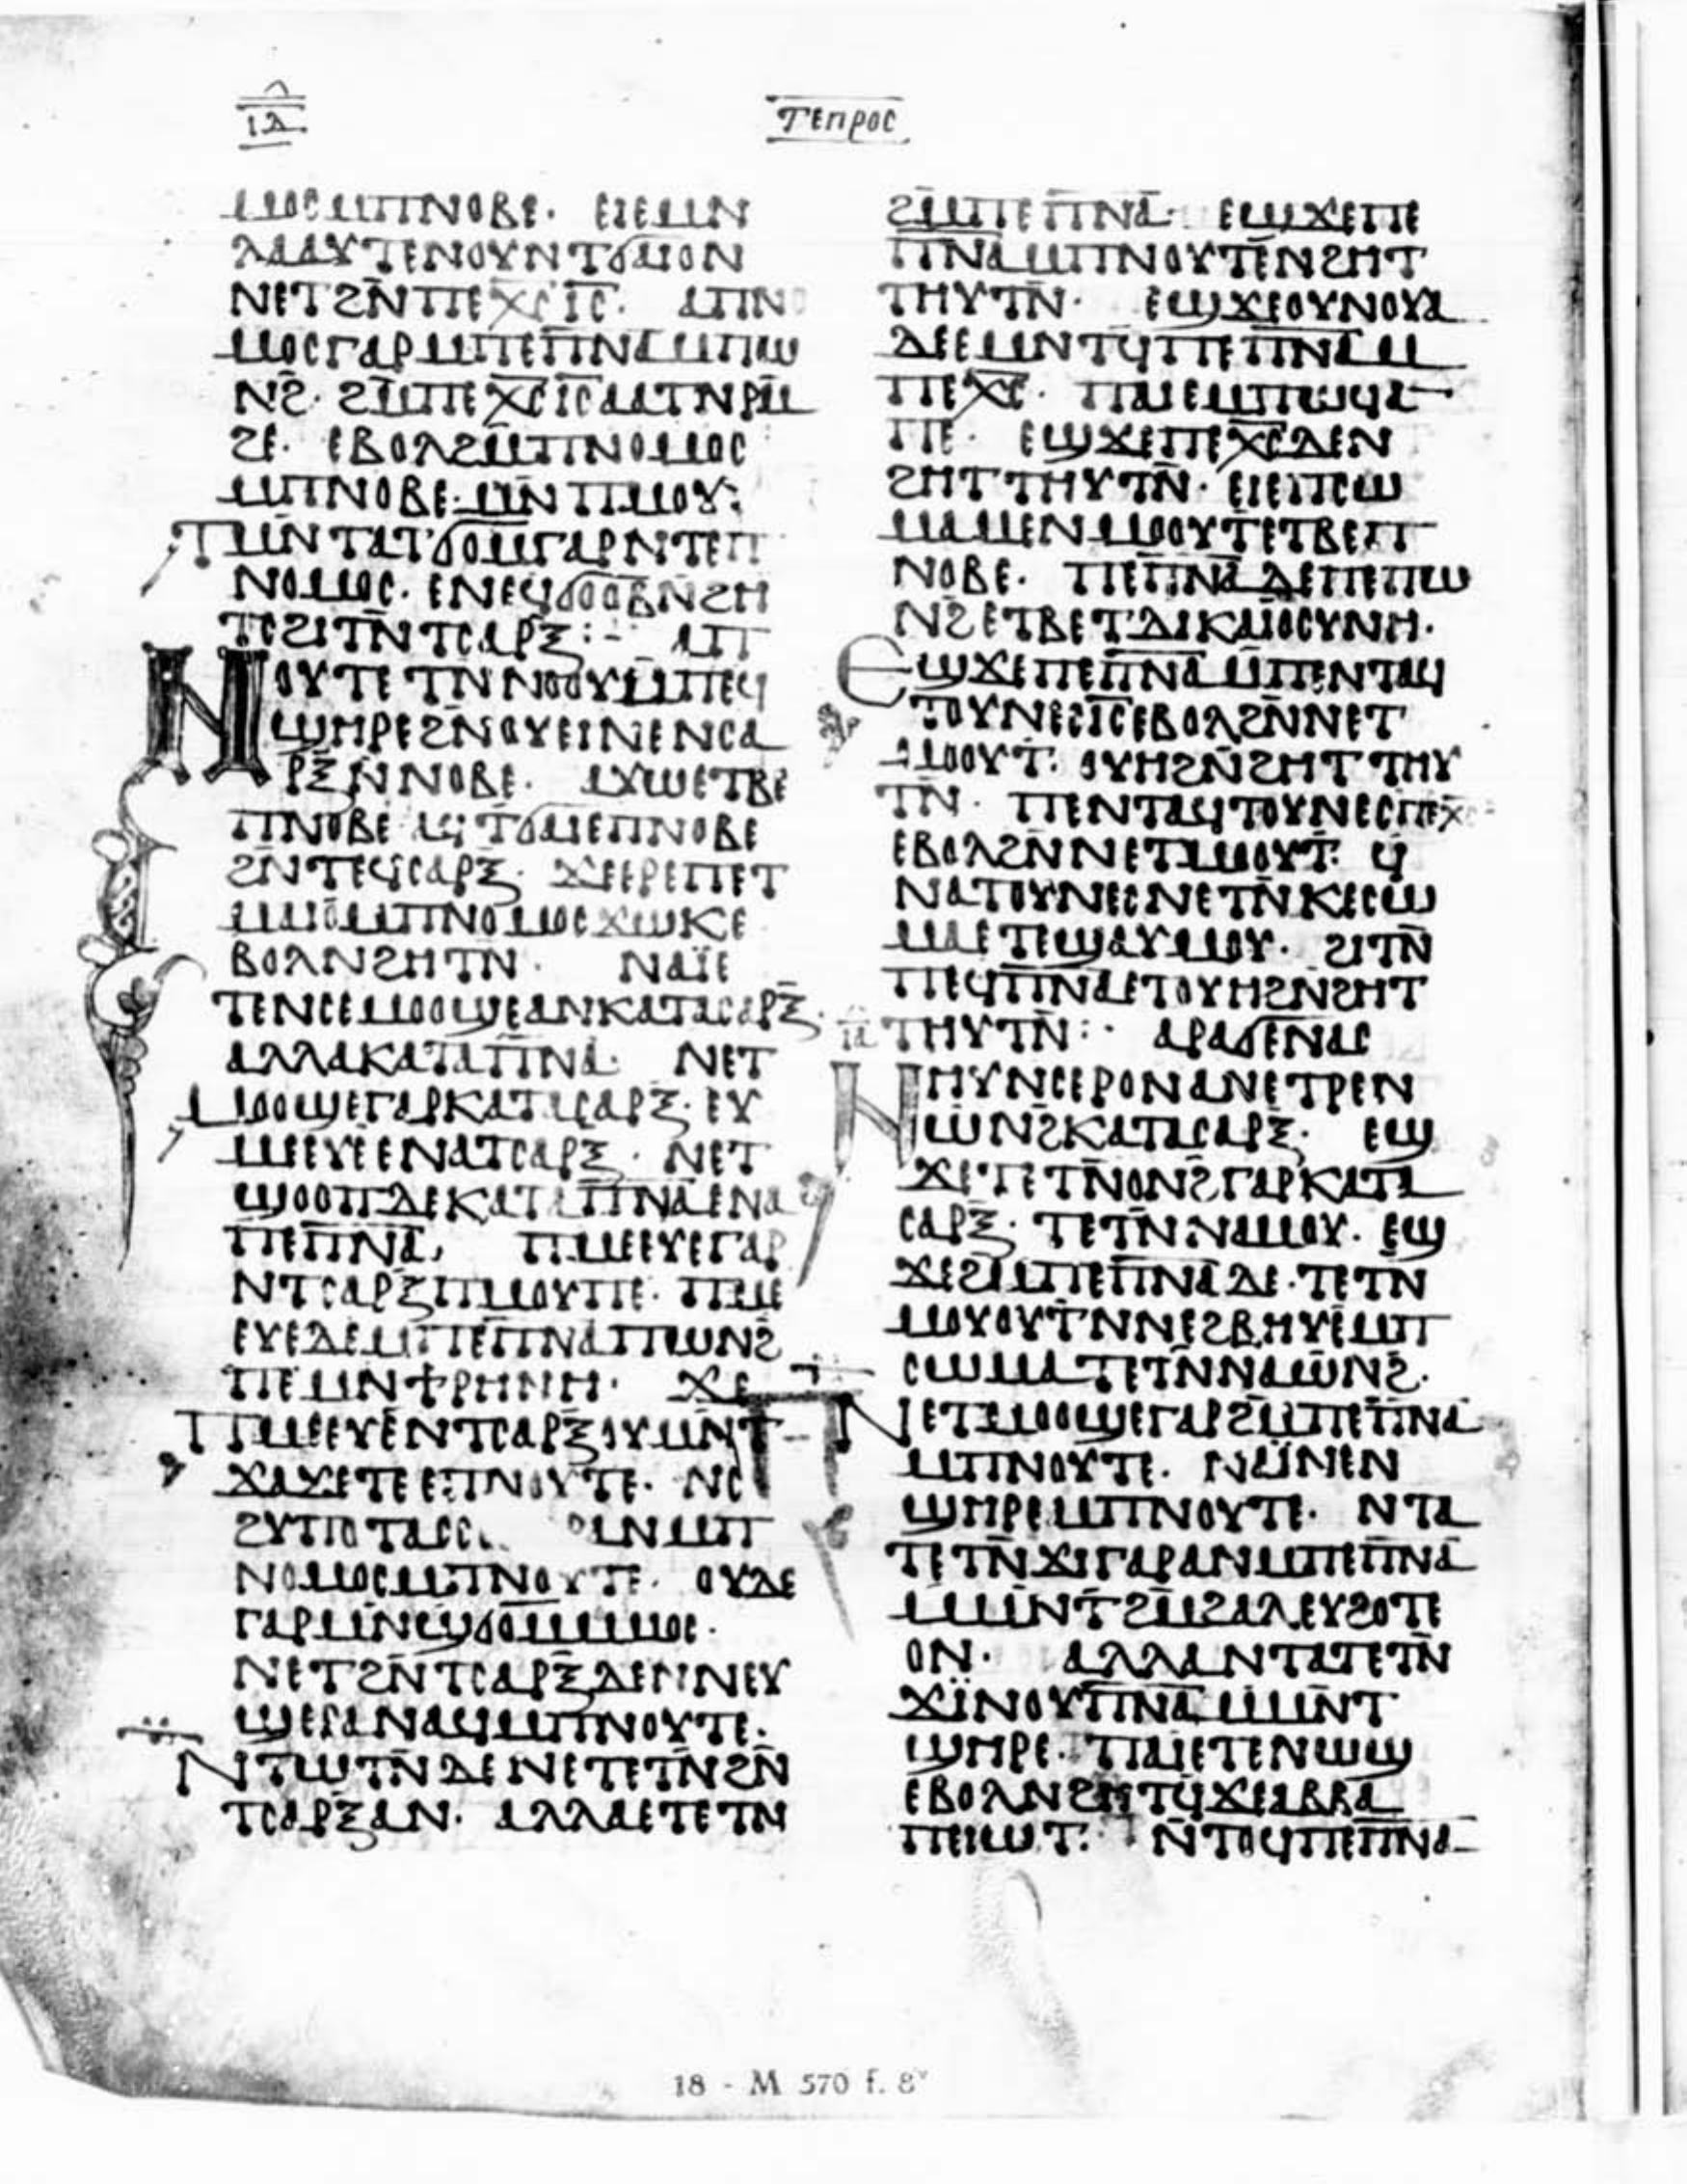 ⲓⲋ
ⲧⲉⲡⲣⲟⲥ
ⲙⲟⲥ ⲙⲡⲛⲟⲃⲉ· ⲉⲓⲉⲙⲛ
ⲗⲁⲁⲩ ⲧⲉⲛⲟⲩ ⲛⲧϭⲁⲓⲟ ⲛ
ⲛⲉⲧϩⲛ ⲡⲉⲭⲥ ⲓⲥ· ⲁⲡⲛⲟ
ⲙⲟⲥ ⲅⲁⲣ ⲙⲡⲉⲡⲛⲁ ⲙⲡⲱ
ⲛϩ· ϩⲙ ⲡⲉⲭⲥ ⲓⲥ ⲁⲁⲧⲛ ⲣⲙ
ϩⲉ· ⲉⲃⲟⲗ ϩⲙ ⲡⲛⲟⲙⲟⲥ
ⲙⲡⲛⲟⲃⲉ· ⲙⲛ ⲡⲙⲟⲩ:
ⲧⲙⲛⲧⲁⲧϭⲟⲙ ⲅⲁⲣ ⲛⲧⲉ ⲡ
ⲛⲟⲙⲟⲥ· ⲉⲛⲉϥϭⲟⲟⲃ ⲛϩⲏ
ⲧⲥ ϩⲓⲧⲛ ⲧⲥⲁⲣⲝ:- ⲁⲡ
ⲛⲟⲩⲧⲉ ⲧⲛⲛⲟⲟⲩ ⲙⲡⲉϥ
ϣⲏⲣⲉ ϩⲛ ⲟⲩⲉⲓⲛⲉ ⲛⲥⲁ
ⲣⲝ ⲛⲛⲟⲃⲉ· ⲁⲩⲱ ⲉⲧⲃⲉ
ⲡⲛⲟⲃⲉ ⲁϥⲧϭⲁⲓⲉ ⲡⲛⲟⲃⲉ
ϩⲛ ⲧⲉϥⲥⲁⲣⲝ· ϫⲉⲉⲣⲉ ⲡⲉⲧ
ⲙⲁⲓⲟ ⲙⲡⲛⲟⲙⲟⲥ ϫⲱⲕ ⲉ
ⲃⲟⲗ ⲛϩⲏⲧⲛ· ⲛⲁⲓ̈ ⲉ
ⲧⲉⲛⲥⲉⲙⲟⲟϣⲉ ⲁⲛ ⲕⲁⲧⲁ ⲥⲁⲣⲝ·
ⲁⲗⲗⲁ ⲕⲁⲧⲁ ⲡⲛⲁ· ⲛⲉⲧ
ⲙⲟⲟϣⲉ ⲅⲁⲣ ⲕⲁⲧⲁ ⲥⲁⲣⲝ· ⲉⲩ
ⲙⲉⲉⲩⲉ ⲉⲛⲁ ⲧⲥⲁⲣⲝ· ⲛⲉⲧ
ϣⲟⲟⲡ ⲇⲉ ⲕⲁⲧⲁ ⲡⲛⲁ ⲉⲛⲁ
ⲡⲉⲡⲛⲁ· ⲡⲙⲉⲉⲩⲉ ⲅⲁⲣ
ⲛⲧⲥⲁⲣⲝ ⲡⲙⲟⲩ ⲡⲉ· ⲡⲙⲉ
ⲉⲩⲉ ⲇⲉ ⲙⲡⲉⲡⲛⲁ ⲡⲱⲛϩ
ⲡⲉ ⲙⲛ ϯⲣⲏⲛⲏ· ϫⲉ
ⲡⲙⲉⲉⲩⲉ ⲛⲧⲥⲁⲣⲝ ⲟⲩⲙⲛⲧ
ϫⲁϫⲉ ⲧⲉ ⲉⲡⲛⲟⲩⲧⲉ· ⲛⲥ
ϩⲩⲡⲟⲧⲁⲥⲥ ⲁⲛ ⲙⲡ
ⲛⲟⲙⲟⲥ ⲙⲡⲛⲟⲩⲧⲉ· ⲟⲩⲇⲉ
ⲅⲁⲣ ⲙⲛϣϭⲟⲙ ⲙⲙⲟⲥ·
ⲛⲉⲧϩⲛ ⲧⲥⲁⲣⲝ ⲇⲉ ⲛⲛⲉⲩ
ϣⲉⲣⲁⲛⲁϥ ⲙⲡⲛⲟⲩⲧⲉ·
ⲛⲧⲱⲧⲛ ⲇⲉ ⲛⲉⲧⲉⲧⲛϩⲛ
ⲧⲥⲁⲣⲝ ⲁⲛ· ⲁⲗⲗⲁ ⲉⲧⲉⲧⲛ
ϩⲙ ⲡⲉⲡⲛⲁ· ⲉϣϫⲉ ⲡⲉ
ⲡⲛⲁ ⲙⲡⲛⲟⲩⲧⲉ ⲛϩⲏⲧ
ⲧⲏⲩⲧⲛ· ⲉϣϫⲉ ⲟⲩⲛ ⲟⲩⲁ
ⲇⲉ ⲉⲙⲛⲧϥ ⲡⲉⲡⲛⲁ ⲙ
ⲡⲉⲭⲥ· ⲡⲁⲓ ⲉⲙⲡⲱϥ ⲁ
ⲡⲉ· ⲉϣϫⲉ ⲡⲉⲭⲥ ⲇⲉ ⲛ
ϩⲏⲧ ⲧⲏⲩⲧⲛ· ⲉⲓⲉ ⲡⲥⲱ
ⲙⲁ ⲙⲉⲛ ⲙⲟⲟⲩⲧ ⲉⲧⲃⲉ ⲡ
ⲛⲟⲃⲉ· ⲡⲉⲡⲛⲁ ⲇⲉ ⲡⲉ ⲡⲱ
ⲛϩ ⲉⲧⲃⲉ ⲧⲇⲓⲕⲁⲓⲟⲥⲩⲛⲏ·
ⲉϣϫⲉ ⲡⲉⲡⲛⲁ ⲙⲡⲉⲛⲧⲁϥ
ⲧⲟⲩⲛⲉⲥ ⲓⲥ ⲉⲃⲟⲗ ϩⲛ ⲛⲉⲧ
ⲙⲟⲟⲩⲧ· ⲟⲩⲏϩ ⲛϩⲏⲧ ⲧⲏⲩ
ⲧⲛ· ⲡⲉⲛⲧⲁϥⲧⲟⲩⲛⲉⲥ ⲡⲉⲭⲥ
ⲉⲃⲟⲗ ϩⲛ ⲛⲉⲧⲙⲟⲟⲩⲧ· ϥ
ⲛⲁⲧⲟⲩⲛⲉⲥ ⲛⲉⲧⲛⲕⲉⲥⲱ
ⲙⲁ ⲉⲧⲉϣⲁⲩⲙⲟⲩ· ϩⲓⲧⲛ
ⲡⲉϥⲡⲛⲁ ⲉⲧⲟⲩⲏϩ ⲛϩⲏⲧ
ⲧⲏⲩⲧⲛ:· ⲁⲣⲁ ϭⲉ ⲛⲁⲥ
ⲛⲏⲩ ⲛⲥⲉⲣⲟⲛ ⲁⲛ ⲉⲧⲣⲉⲛ
ⲱⲛϩ ⲕⲁⲧⲁ ⲥⲁⲣⲝ· ⲉϣ
ϫⲉ ⲧⲉⲧⲛⲟⲛϩ ⲅⲁⲣ ⲕⲁⲧⲁ
ⲥⲁⲣⲝ· ⲧⲉⲧⲛⲛⲁⲙⲟⲩ· ⲉϣ
ϫⲉ ϩⲙ ⲡⲉⲡⲛⲁ ⲇⲉ· ⲧⲉⲧⲛ
ⲙⲟⲩⲟⲩⲧ ⲛⲛⲉϩⲃⲏⲩⲉ ⲙⲡ
ⲥⲱⲙⲁ ⲧⲉⲧⲛⲛⲁⲱⲛϩ·
ⲛⲉⲧⲙⲟⲟϣⲉ ⲅⲁⲣ ϩⲙ ⲡⲉⲡⲛⲁ
ⲙⲡⲛⲟⲩⲧⲉ· ⲛⲁⲓ̈ ⲛⲉ ⲛ
ϣⲏⲣⲉ ⲙⲡⲛⲟⲩⲧⲉ· ⲛⲧⲁ
ⲧⲉⲧⲛϫⲓ ⲅⲁⲣ ⲁⲛ ⲙⲡⲉⲡⲛⲁ
ⲙⲙⲛⲧϩⲙϩⲁⲗ ⲉⲩϩⲟⲧⲉ
ⲟⲛ· ⲁⲗⲗⲁ ⲛⲧⲁⲧⲉⲧⲛ
ϫⲓ̈ ⲛⲟⲩⲡⲛⲁ ⲙⲙⲛⲧ
ϣⲏⲣⲉ· ⲡⲁⲓ ⲉⲧⲉⲛⲱϣ
ⲉⲃⲟⲗ ⲛϩⲏⲧϥ ϫⲉ ⲁⲃⲃⲁ
ⲡⲉⲓⲱⲧ· ⲛⲧⲟϥ ⲡⲉⲡⲛⲁ
18 - M 570 f. 8ᵛ